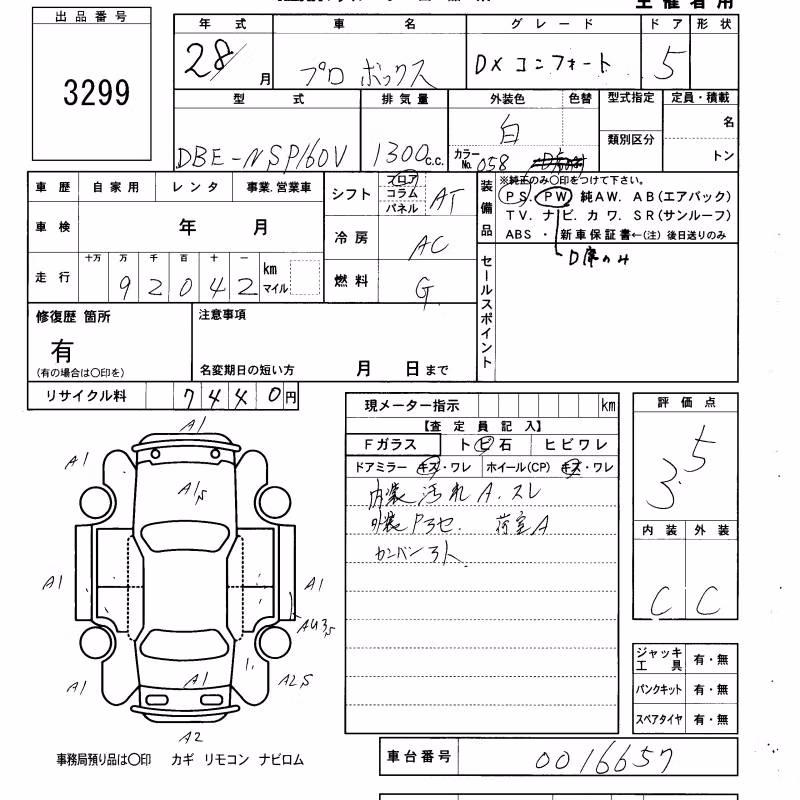 主催者用
出品番号
3299
年式 車名 グレード ドア 形状
28/ 月 プロボックス DXコンフォート 5
型式 排気量 外装色 色替 型式指定 定員・積載
DBE-NSP160V 1300c.c. 白 類別区分 名
カラーNo. 058 トン
車歴 自家用 レンタ 事業.営業車
車検 年 月
走行 十万 万 千 百 十 一
92042 km マイル
シフト フロア コラム パネル AT
冷房 AC
燃料 G
装備品
※純正のみ○印をつけて下さい。
PS. PW 純AW. AB(エアバック)
TV. ナビ. カワ. SR(サンルーフ)
ABS ・ 新車保証書←(注) 後日送りのみ
D席のみ
セールスポイント
修復歴 箇所
有
(有の場合は○印を)
注意事項
名変期日の短い方 月 日まで
リサイクル料 7440円
現メーター指示 km
【査定員記入】
Fガラス トビ石 ヒビワレ
ドアミラー キズ・ワレ ホイール(CP) キズ・ワレ
内装 汚れ A.スレ
外装 Pヨセ. 荷室A
カンバン ヨト
評価点
3.5
内装 外装
C C
ジャッキ工具 有・無
パンクキット 有・無
スペアタイヤ 有・無
A1
A1 A1,S A1
A1 A1
AU3,S
A1 A1 A2,S
A2
事務局預り品は○印 カギ リモコン ナビロム
車台番号 0016657